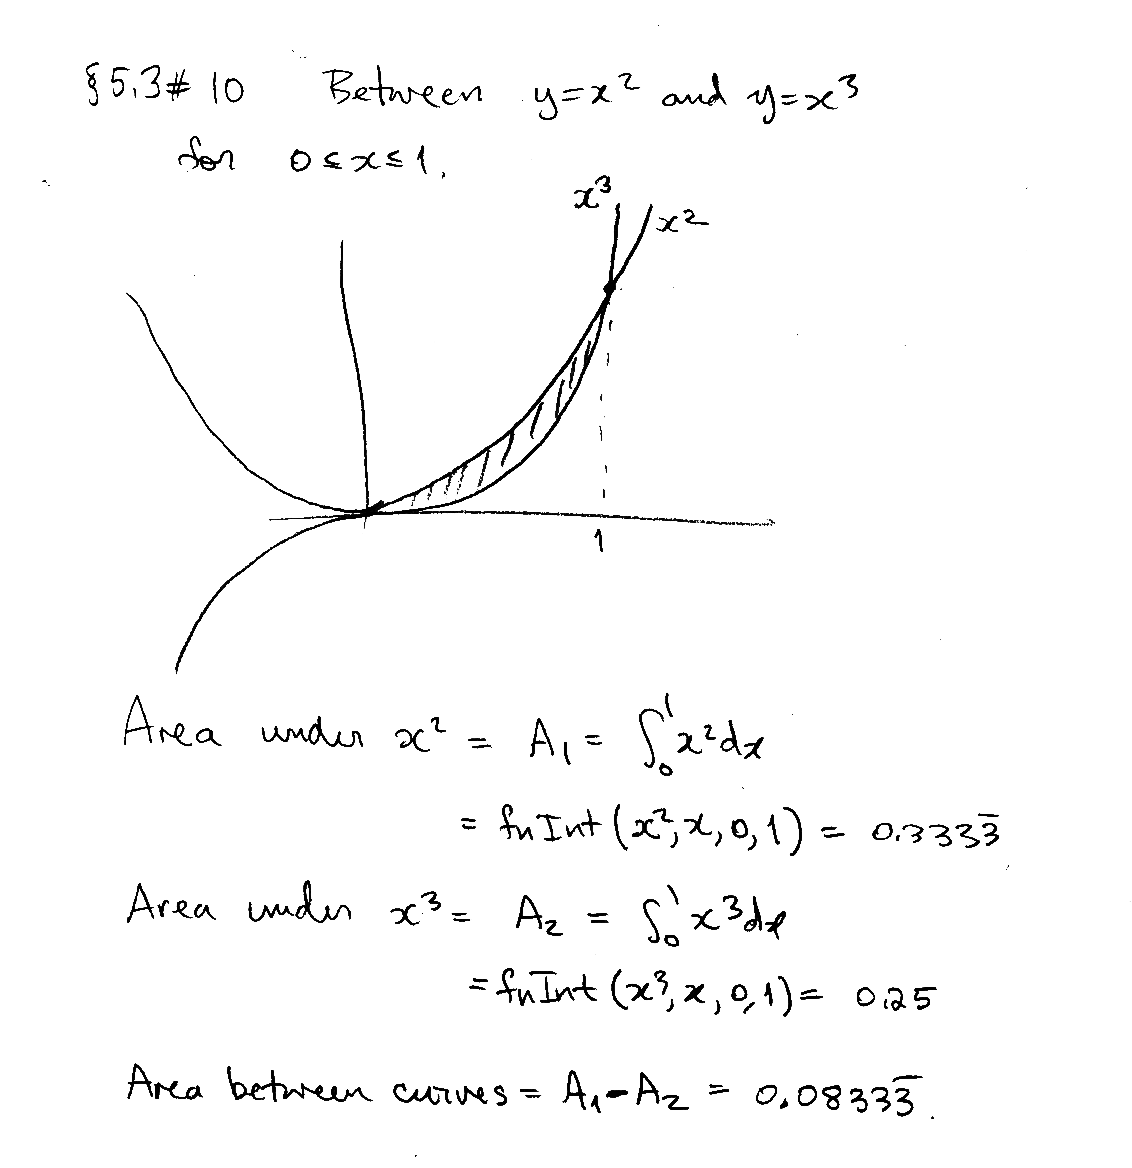 §5.3#10 Between y=x² and y=x³
for 0≤x≤1.
x³
x²
1
Area under x² = A₁ = ∫₀¹x²dx
= fnInt(x², x, 0, 1) = 0.3333̅
Area under x³ = A₂ = ∫₀¹x³dx
= fnInt(x³, x, 0, 1) = 0.25
Area between curves = A₁-A₂ = 0.0833̅3̅.